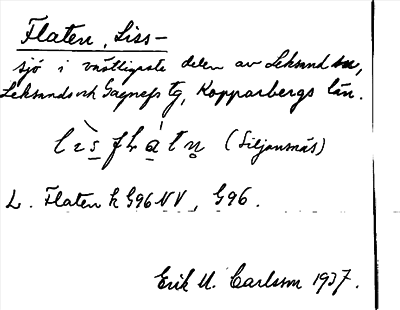 Flaten, Liss-
sjö i västligaste delen av Leksand sn,
Leksands och Gagnefs tg, Kopparbergs län.
(Siljansnäs)
L. Flaten k G96 NV, G96.
Erik U. Carlsson 1937.